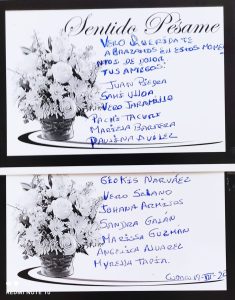 Sentido Pésame
VERO QUERIDA TE
ABRAZAMOS EN ESTOS MOME
NTOS DE DOLOR
TUS AMIGOS:
JUAN PIEDRA
SAMI ULLOA
VERO JARAMILLO
TACURI
MARICIA BARRERA
PAULINA
GEOKIS NARVÁEZ
VERO SOLANO
JOHANA ARMIJOS
SANDRA GALÁN
MARISSA GUZMAN
ANGELICA ALVAREZ
TAPIA.
REDMI NOTE 10